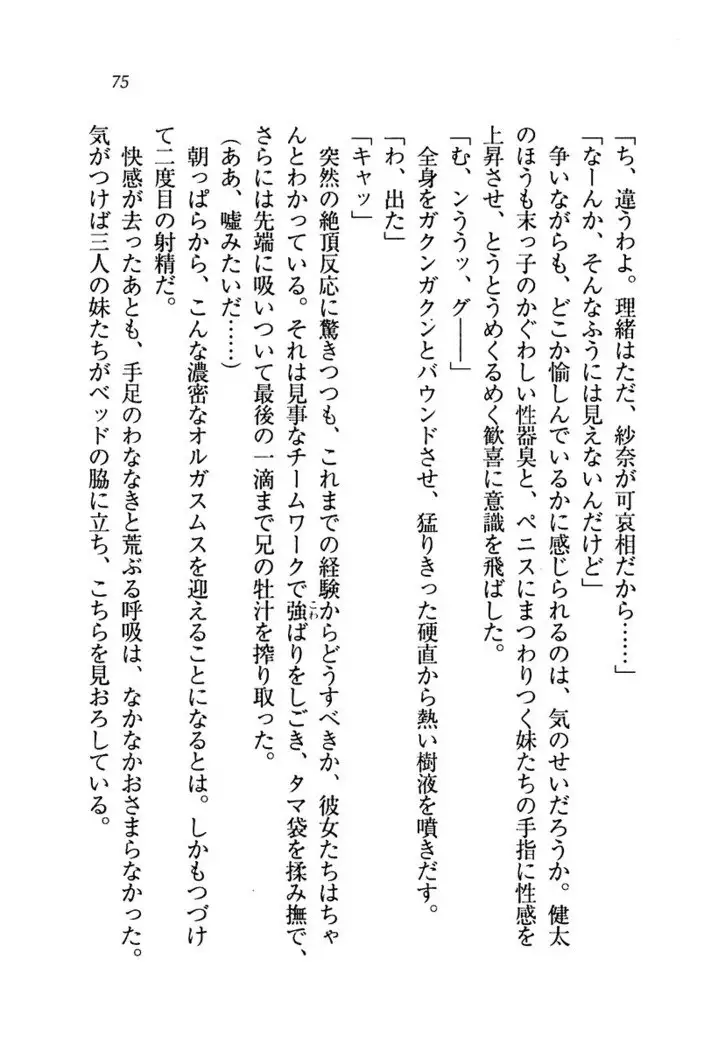 75
「ち、違うわよ。理緒はただ、紗奈が可哀相だから……」
「なーんか、そんなふうには見えないんだけど」
争いながらも、どこか愉しんでいるかに感じられるのは、気のせいだろうか。健太
のほうも末っ子のかぐわしい性器臭と、ペニスにまつわりつく妹たちの手指に性感を
上昇させ、とうとうめくるめく歓喜に意識を飛ばした。
「む、ンううッ、グ――」
全身をガクンガクンとバウンドさせ、猛りきった硬直から熱い樹液を噴きだす。
「わ、出た」
「キャッ」
突然の絶頂反応に驚きつつも、これまでの経験からどうすべきか、彼女たちはちゃ
んとわかっている。それは見事なチームワークで強こわばりをしごき、タマ袋を揉み撫で、
さらには先端に吸いついて最後の一滴まで兄の牡汁を搾り取った。
(ああ、嘘みたいだ……)
朝っぱらから、こんな濃密なオルガスムスを迎えることになるとは。しかもつづけ
て二度目の射精だ。
快感が去ったあとも、手足のわななきと荒ぶる呼吸は、なかなかおさまらなかった。
気がつけば三人の妹たちがベッドの脇に立ち、こちらを見おろしている。